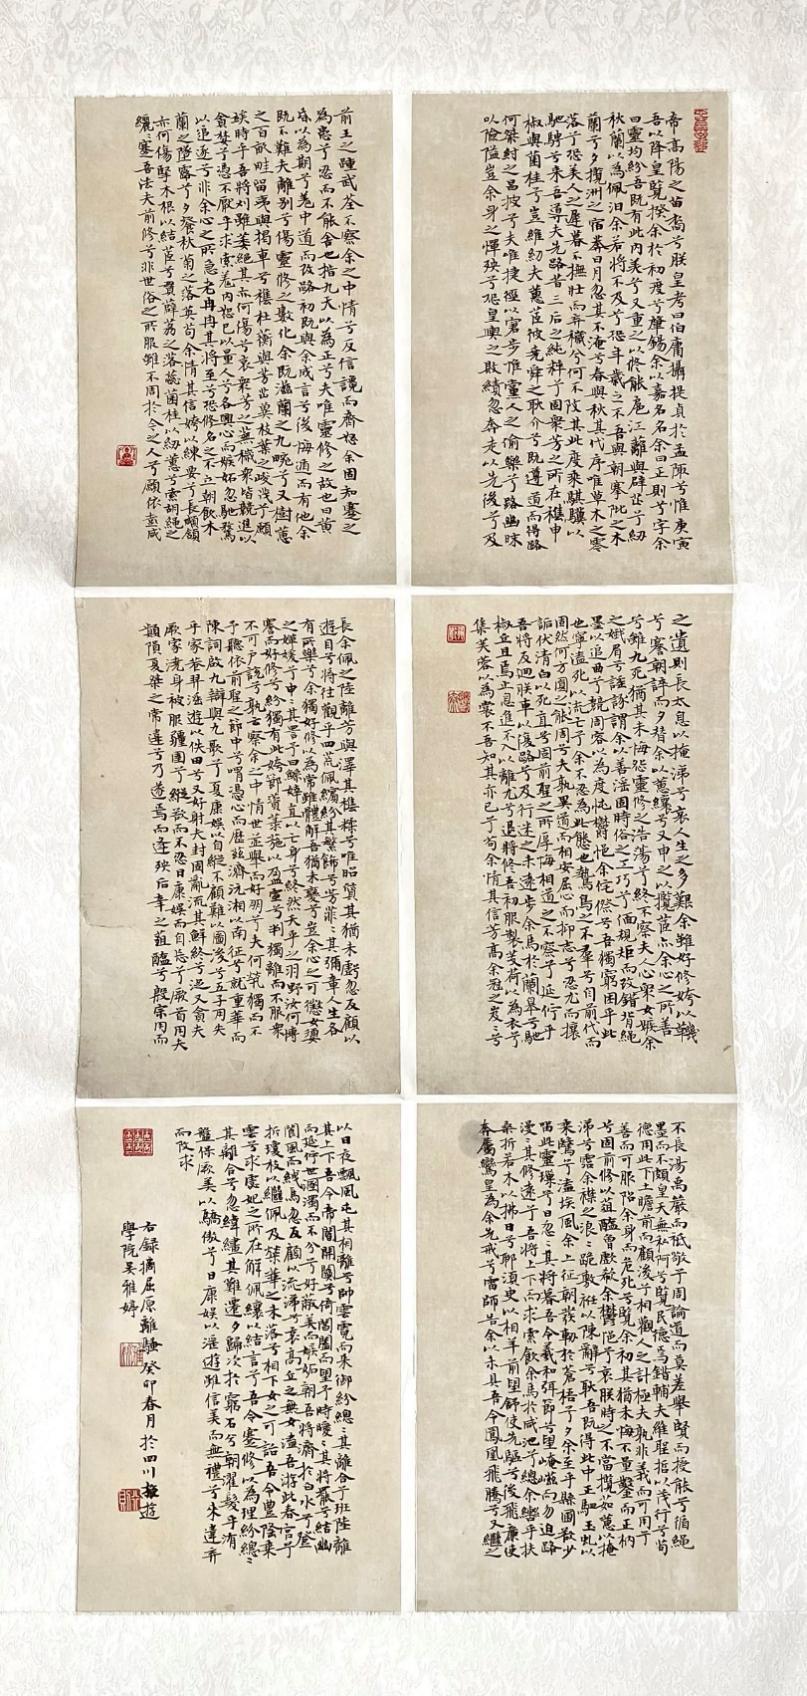 帝高陽之苗裔兮朕皇考曰伯庸攝提貞於孟陬兮惟庚寅
吾以降皇覽揆余於初度兮肇錫余以嘉名名余曰正則兮字余
曰靈均紛吾既有此內美兮又重之以修能扈江離與辟芷兮紉
秋蘭以為佩汨余若將不及兮恐年歲之不吾與朝搴阰之木
蘭兮夕攬洲之宿莽日月忽其不淹兮春與秋其代序唯草木之零
落兮恐美人之遲暮不撫壯而棄穢兮何不改其此度乘騏驥以
馳騁兮來吾導夫先路昔三后之純粹兮固衆芳之所在雜申
椒與菌桂兮豈維紉夫蕙茝彼堯舜之耿介兮既遵道而得路
何桀紂之昌披兮夫唯捷徑以窘步惟黨人之偷樂兮路幽昧
以險隘豈余身之憚殃兮恐皇輿之敗績忽奔走以先後兮及
前王之踵武荃不察余之中情兮反信讒而齌怒余固知謇之
為患兮忍而不能舍也指九天以為正兮夫唯靈修之故也曰黃
昏以為期兮羌中道而改路初既與余成言兮後悔遁而有他余
既不難夫離別兮傷靈修之數化余既滋蘭之九畹兮又樹蕙
之百畝畦留夷與揭車兮雜杜蘅與芳芷冀枝葉之峻茂兮願
竢時乎吾將刈雖萎絕其亦何傷兮哀衆芳之蕪穢衆皆競進以
貪婪兮憑不厭乎求索羌內恕己以量人兮各興心而嫉妒忽馳騖
以追逐兮非余心之所急老冉冉其將至兮恐修名之不立朝飲木
蘭之墜露兮夕餐秋菊之落英苟余情其信姱以練要兮長顑頷
亦何傷擥木根以結茝兮貫薜荔之落蕊菌桂以紉蕙兮索胡繩之
纚纚謇吾法夫前修兮非世俗之所服雖不周於今之人兮願依彭咸
之遺則長太息以掩涕兮哀人生之多艱余雖好修姱以鞿
兮謇朝誶而夕替余以蕙纕兮又申之以攬茝亦余心之所善
兮雖九死猶其未悔怨靈修之浩蕩兮終不察夫人心衆女嫉余
之娥眉兮謠諑謂余以善淫固時俗之工巧兮偭規矩而改錯背繩
墨以追曲兮競周容以為度忳鬱悒余侘傺兮吾獨窮困乎此
也寧溘死以流亡兮余不忍為此態也鷙鳥之不羣兮自前代而
固然何方圜之能周兮夫孰異道而相安屈心而抑志兮忍尤而攘
詬伏清白以死直兮固前聖之所厚悔相道之不察兮延佇乎
吾將反迴朕車以復路兮及行迷之未遠步余馬於蘭皋兮馳
椒丘且焉止息進不入以離尤兮退將修吾初服製芰荷以為衣兮
集芙蓉以為裳不吾知其亦已兮苟余情其信芳高余冠之岌岌兮
長余佩之陸離芳與澤其雜糅兮唯昭質其猶未虧忽反顧以
遊目兮將往觀乎四荒佩繽紛其繁飾兮芳菲菲其彌章人生各
有所樂兮余獨好修以為常雖體解吾猶未變兮豈余心之可懲女嬃
之嬋媛兮申申其詈予曰鯀婞直以亡身兮終然夭乎之羽野汝何博
謇而好修兮紛獨有此姱節薋菉葹以盈室兮判獨離而不服衆
不可戶說兮孰云察余之中情世並舉而好朋兮夫何煢獨而不
予聽依前聖之節中兮喟憑心而歷茲濟沅湘以南征兮就重華而
陳詞啟九辯與九歌兮夏康娛以自縱不顧難以圖後兮五子用失
乎家巷羿淫遊以佚田兮又好射夫封狐亂流其鮮終兮浞又貪夫
厥家澆身被服彊圉兮縱欲而不忍日康娛而自忘兮厥首用夫
顛隕夏桀之常違兮乃遂焉而逢殃后辛之菹醢兮殷宗用而
不長湯禹嚴而祗敬兮周論道而莫差舉賢而授能兮循繩
墨而不頗皇天無私阿兮覽民德焉錯輔夫維聖哲以茂行兮苟
得用此下土瞻前而顧後兮相觀人之計極夫孰非義而可用兮
善而可服阽余身而危死兮覽余初其猶未悔不量鑿而正枘
兮固前修以菹醢曾歔欷余鬱悒兮哀朕時之不當攬茹蕙以掩
涕兮霑余襟之浪浪跪敷衽以陳辭兮耿吾既得此中正駟玉虬以
乘鷖兮溘埃風余上征朝發軔於蒼梧兮夕余至乎縣圃欲少
留此靈瑣兮日忽忽其將暮吾令羲和弭節兮望崦嵫而勿迫路
漫漫其修遠兮吾將上下而求索飲余馬於咸池兮總余轡乎扶
桑折若木以拂日兮聊須臾以相羊前望舒使先驅兮後飛廉使
奔屬鸞皇為余先戒兮雷師告余以未具吾令鳳鳳飛騰兮又繼之
以日夜飄風屯其相離兮帥雲霓而來御紛總總其離合兮班陸離
其上下吾令帝閽開關兮倚閶闔而望予時曖曖其將罷兮結幽
而延佇世溷濁而不分兮好蔽美而嫉妒朝吾將濟於白水兮登
閬風而緤馬忽反顧以流涕兮哀高丘之無女溘吾游此春宮兮
折瓊枝以繼佩及榮華之未落兮相下女之可詒吾令豐隆乘
雲兮求虙妃之所在解佩纕以結言兮吾令蹇修以為理紛總總
其離合兮忽緯繣其難遷夕歸次於窮石兮朝濯髮乎洧
盤保厥美以驕傲兮日康娛以淫遊雖信美而無禮兮來違棄
而改求
右錄摘屈原離騷癸卯春月於四川旅遊
學院吴雅婷